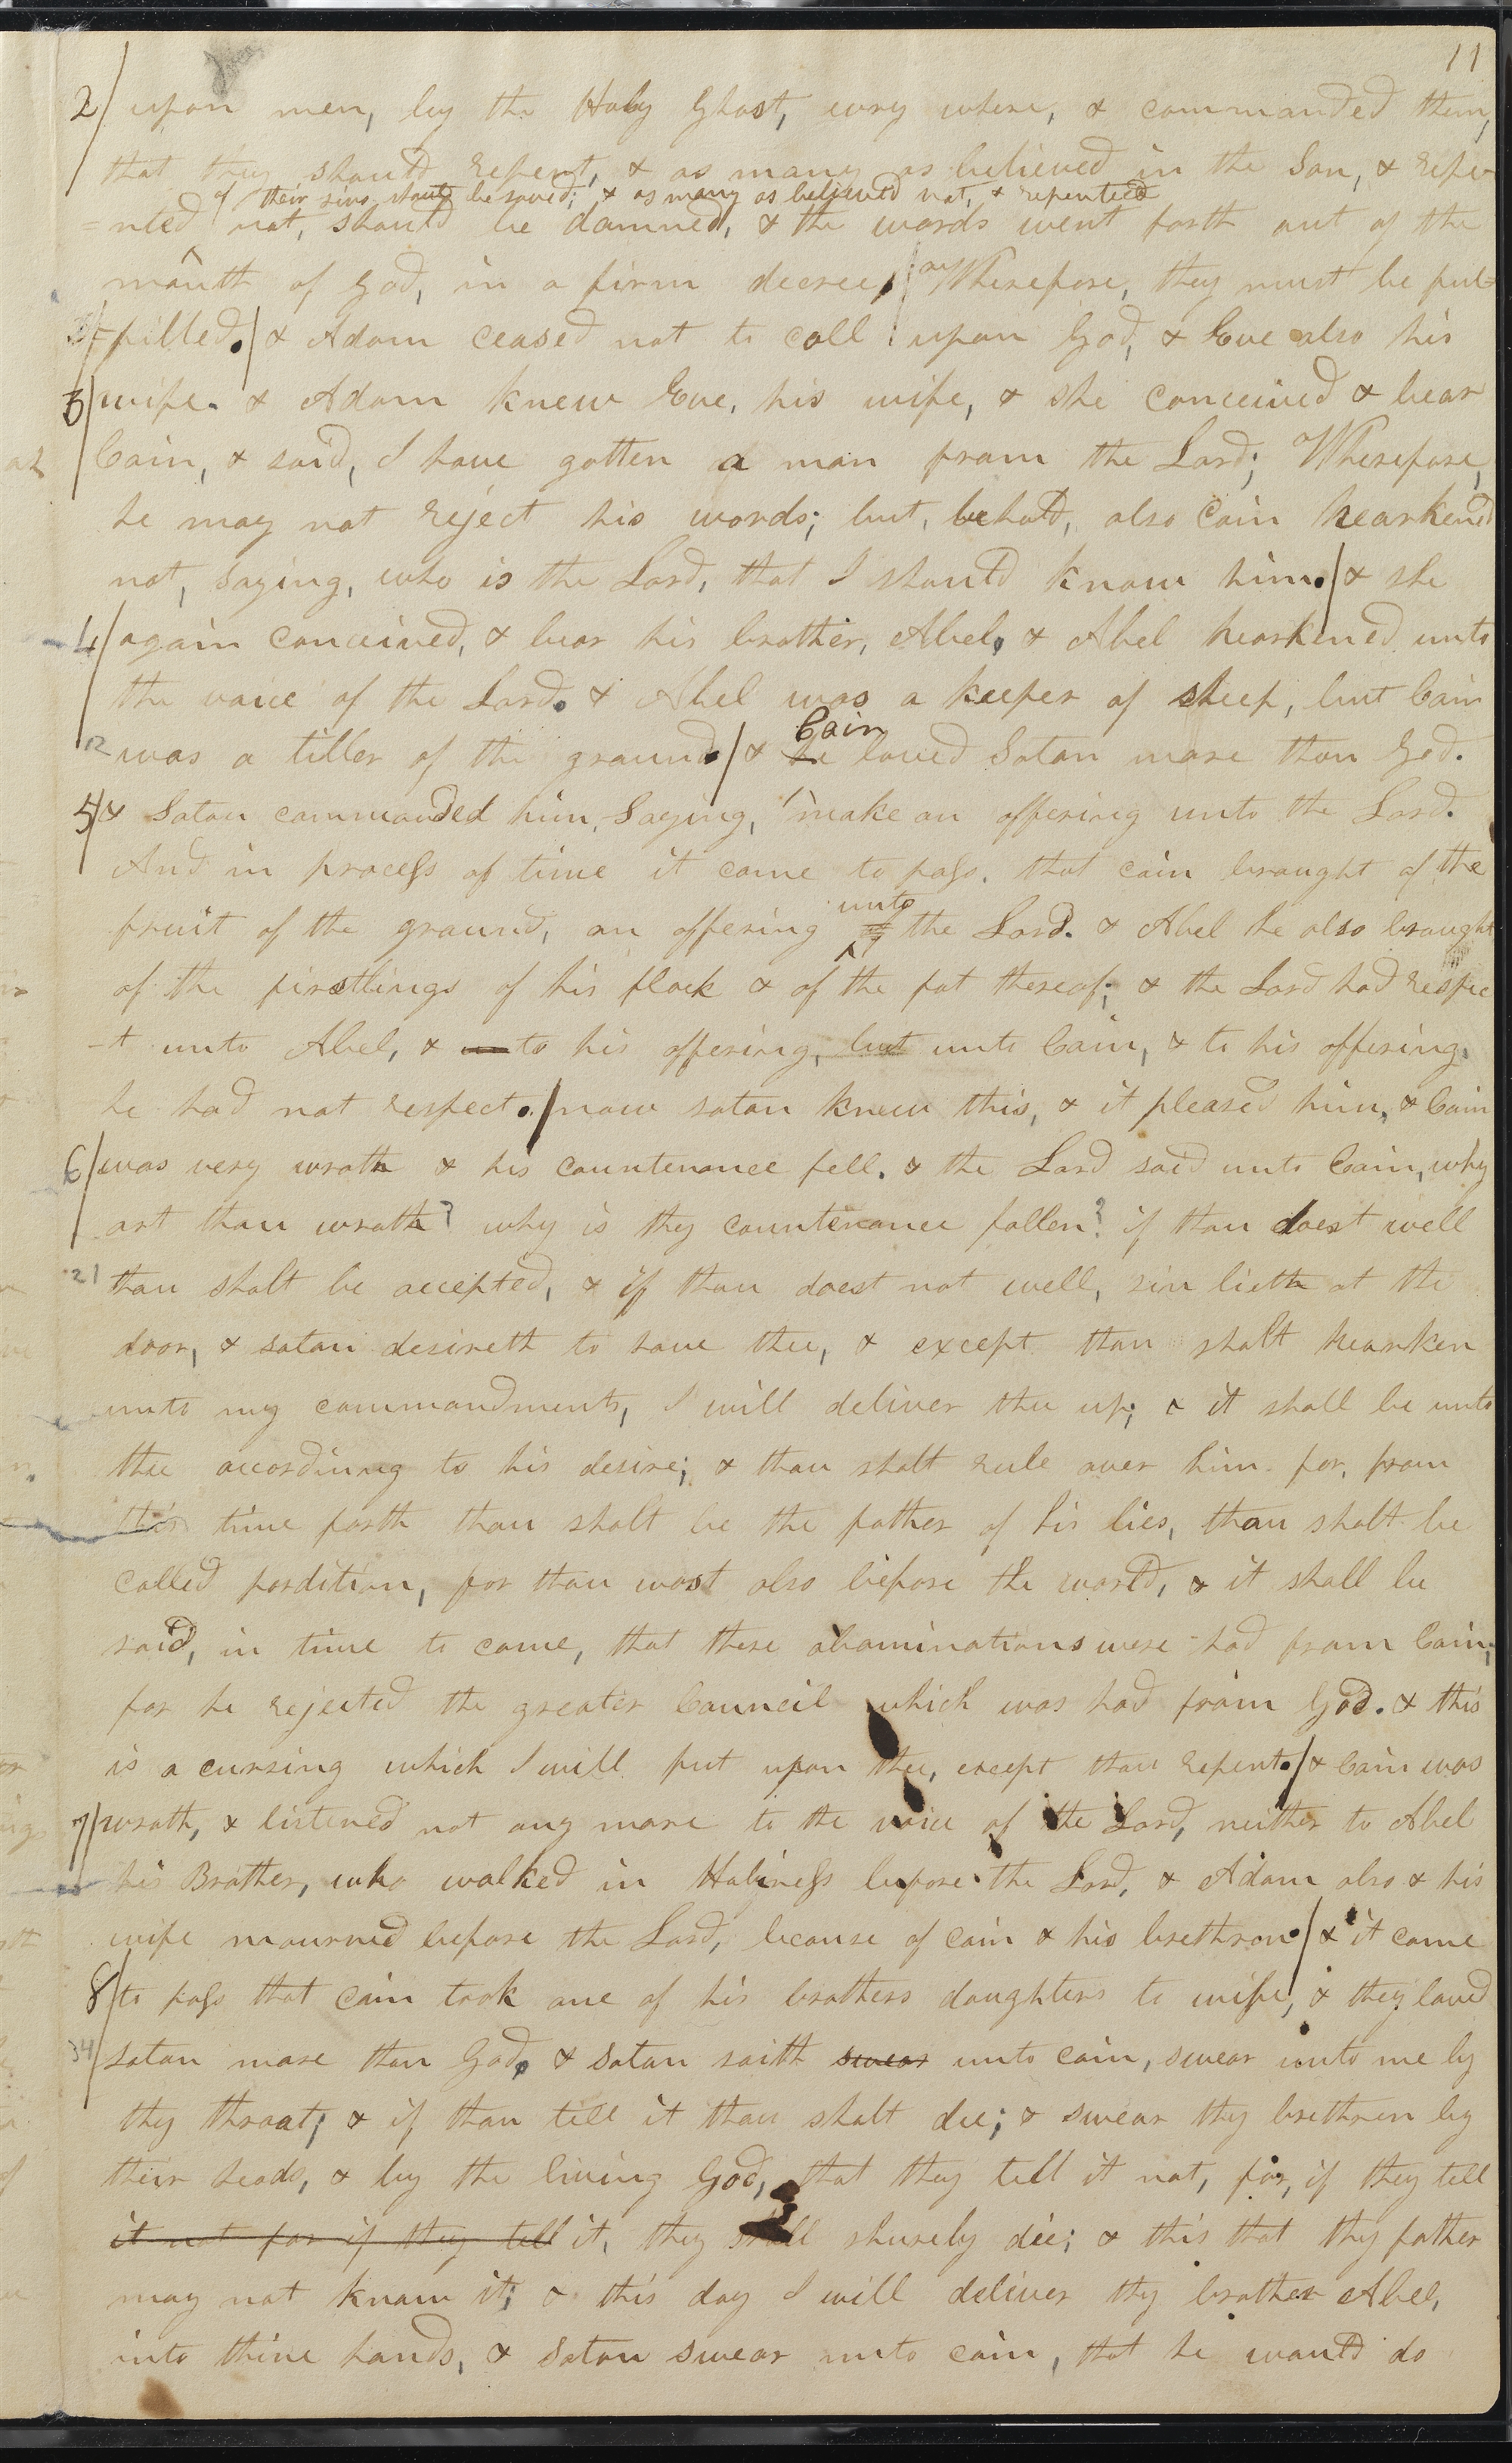 11
2/ upon men, by the Holy Ghost, evry where, & commanded them,
that they should repent, & as many as believed in the Son, & repe-
of their sins should be saved; & as many as believed not, & repented
=nted not, should be damned, & the words went forth out of the
mouth of God, in a firm decree, Wherefore, they must be ful=
-filled. / & Adam ceased not to call upon God, & Eve also his
3/ wife. & Adam knew Eve, his wife, & she conceived & bear
Cain, & said, I have gotten a man from the Lord; Wherefore,
he may not reject his words; but, behold, also Cain hearkened
not, saying, who is the Lord, that I should know him. / & she
4/ again conceived, & bear his brother, Abel, & Abel hearkened unto
the voice of the Lord. & Abel was a keeper of sheep, but Cain
Cain
12 was a tiller of the ground / & he loved Satan more than God.
5/ & Satan commanded him, Saying, make an offering unto the Lord.
And in process of time it came to pass. that cain braught of the
unto
fruit of the ground, an offering of the Lord. & Abel he also braught
of the firstlings of his flock & of the fat thereof; & the Lord had respec
-t unto Abel, & unto his offering, but unto Cain, & to his offering,
he had not respect. / now satan knew this, & it pleased him, & Cain
6/ was very wrath & his countenance fell. & the Lord said unto Cain, why
art thou wrath? why is thy countenance fallen? if thou doest well
21 thou shalt be accepted, & if thou doest not well, sin lieth at the
door, & satan desireth to have thee, & except thou shalt hearken
unto my commandments, I will deliver thee up; & it shall be unto
thee accordinng to his desire; & thou shalt rule over him. for, from
this time forth thou shalt be the father of his lies, thou shalt be
called pordition, for thou wast also before the world, & it shall be
said, in time to come, that these abominations were had from Cain;
for he rejected the greater Council which was had from God. & this
is a cursing which I will put upon thee, except thou repent. / & Cain was
7/ wrath, & listened not any more to the voice of the Lord, neither to Abel
his Brother, who walked in Holiness before the Lord, & Adam also & his
wife mourned before the Lord, because of cain & his brethron / & it came
8/ to pass that cain took one of his brothers daughters to wife, & they loved
34 satan more than God, & satan saith swear unto cain, swear unto me by
thy throat; & if thou tell it thou shalt die; & swear thy brethren by
their heads, & by the living God, that they tell it not, for, if they tell
it not for if they tell it, they shall shurely die; & this that thy father
may not know it; & this day I will deliver thy brother Abel,
into thine hands, & Satan swear unto cain, that he would do